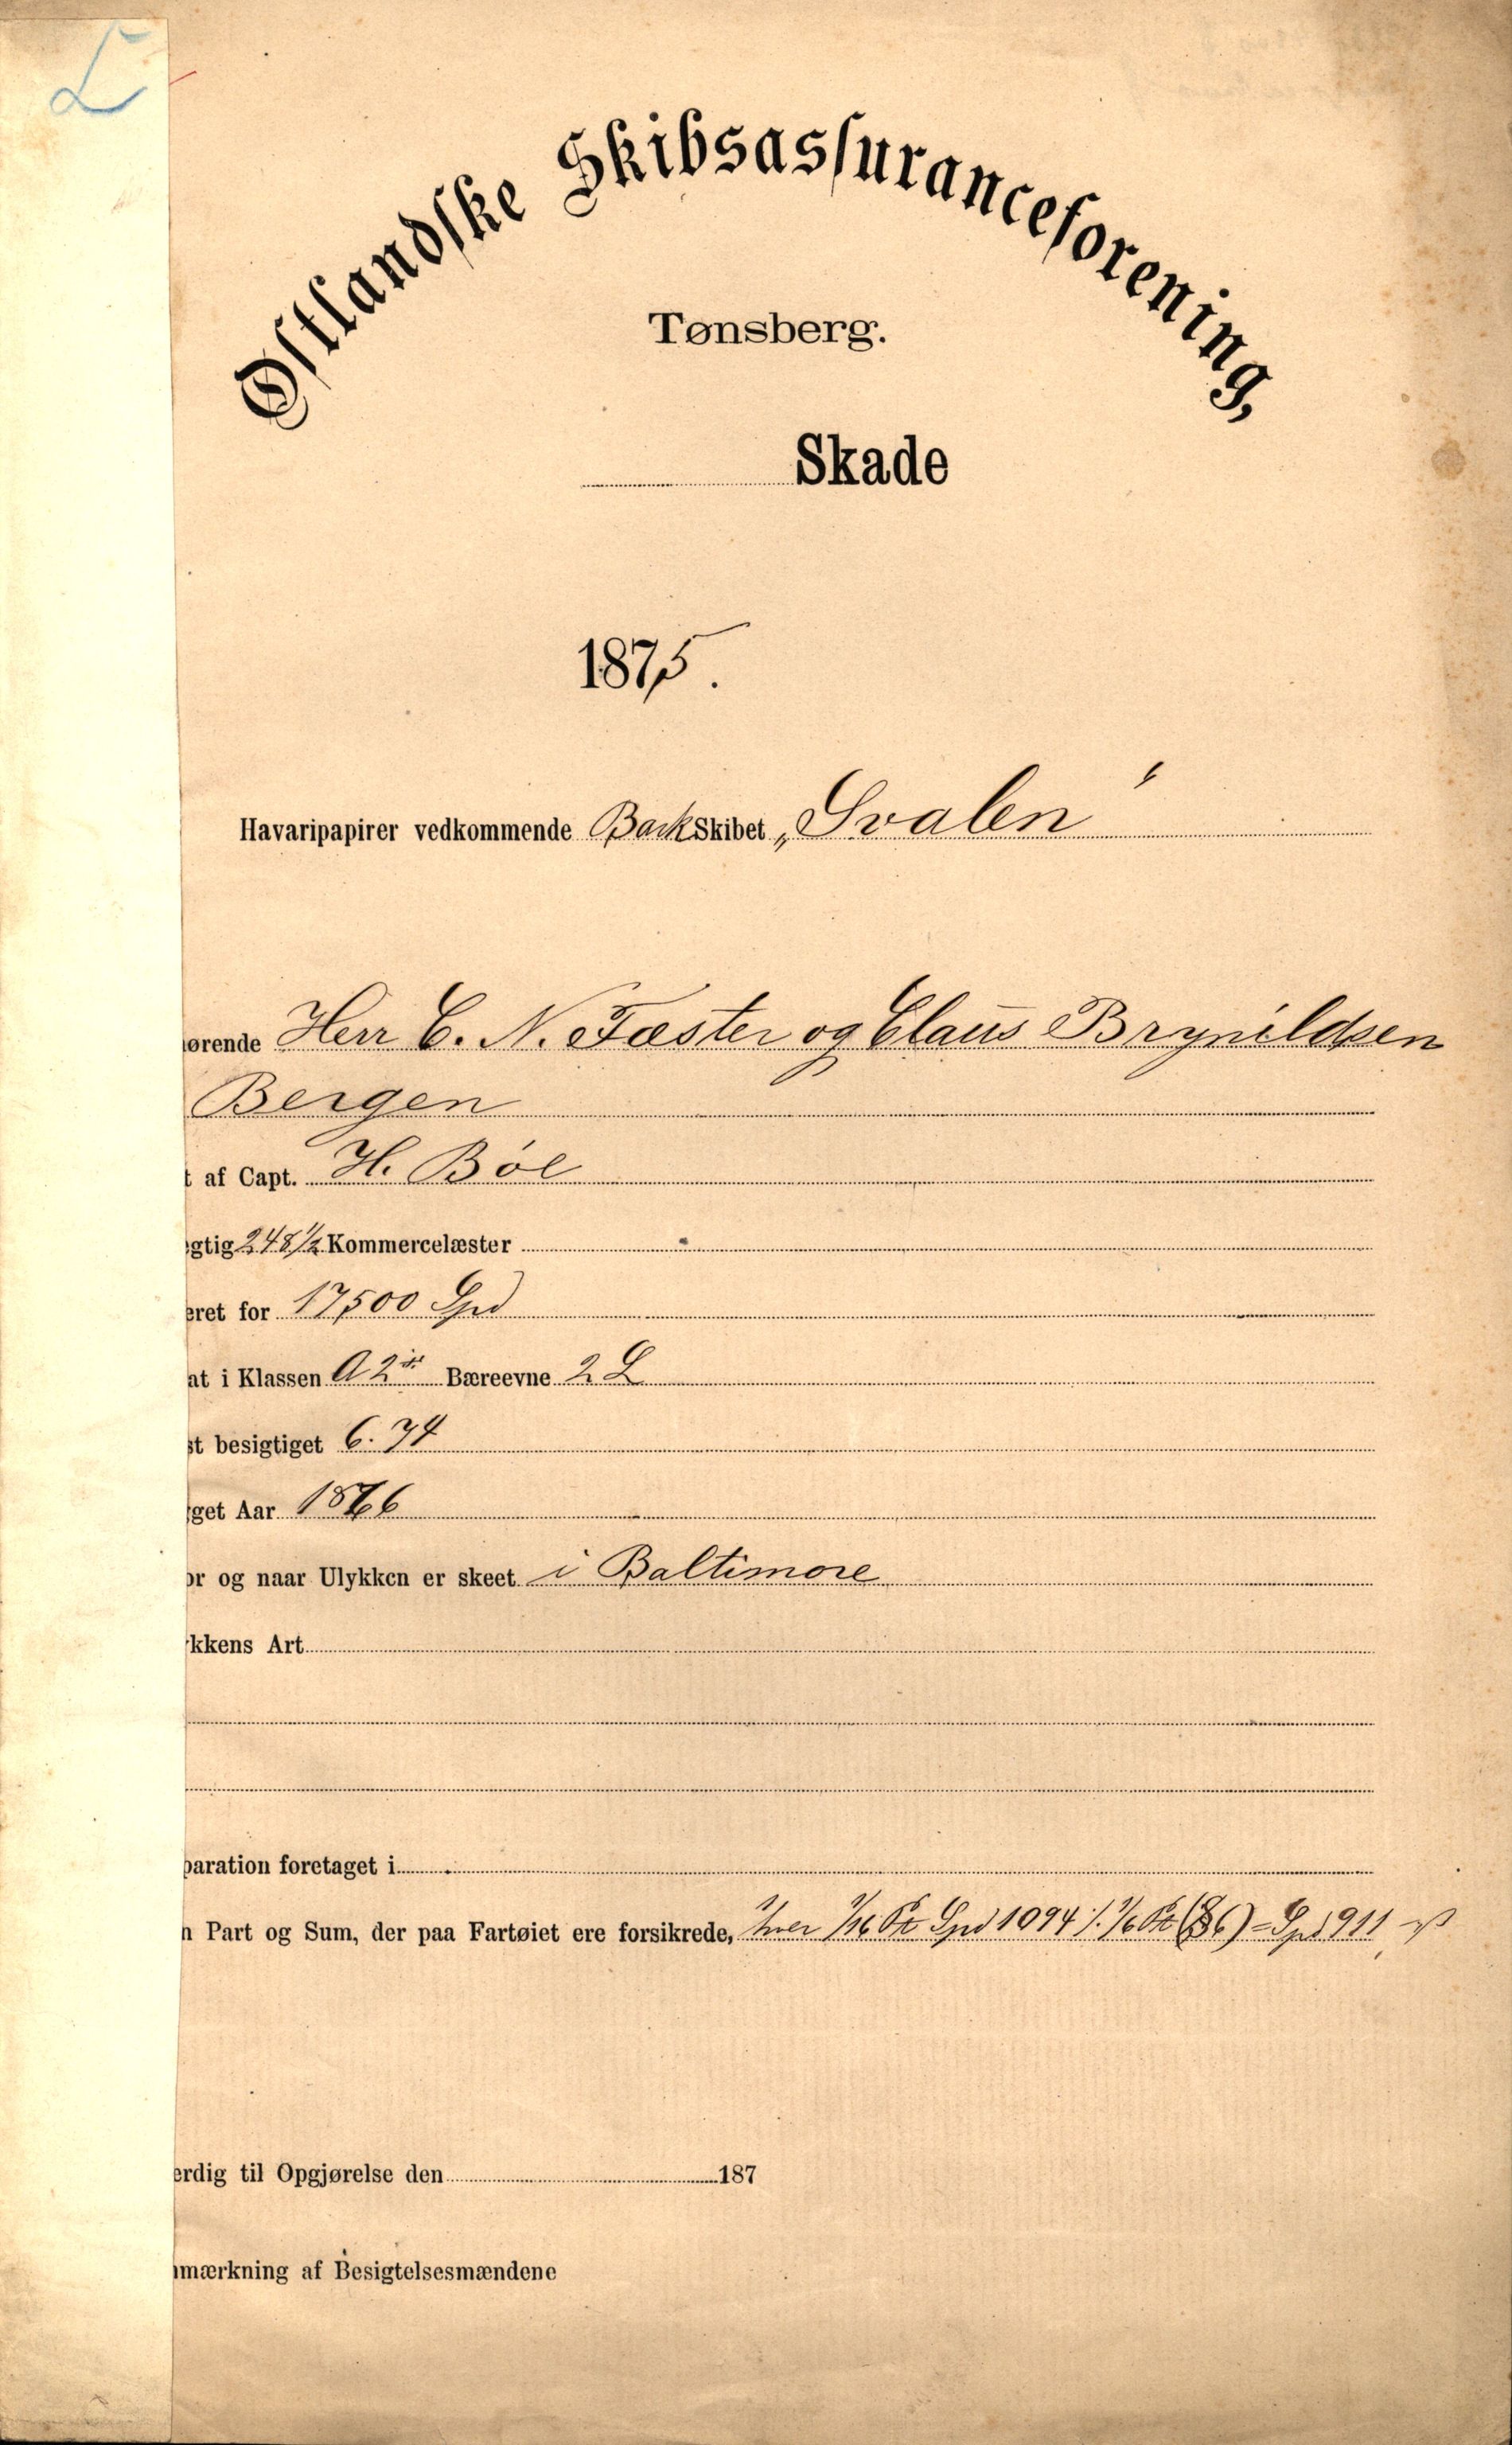 L
Østlandske Skibsassuranceforening,
Tønsberg.
Skade
1875.
Havaripapirer vedkommende Barkskibet „Svalen“
ørende Herr C. N. Fæster og Claus Brynildsen
Bergen
t af Capt. H. Böe
gtig 248 1/2 Kommercelæster
eret for 17500 Spd
at i Klassen A 2 Bæreevne 2 L
st besigtiget 6. 74
get Aar 1866
or og naar Ulykken er skeet i Baltimore
kkens Art
paration foretaget i
n Part og Sum, der paa Fartøiet ere forsikrede, hver 1/16 Pt Spd 1094 ÷ 1/6 Pt = Spd 911
erdig til Opgjørelse den 187
mærkning af Besigtelsesmændene